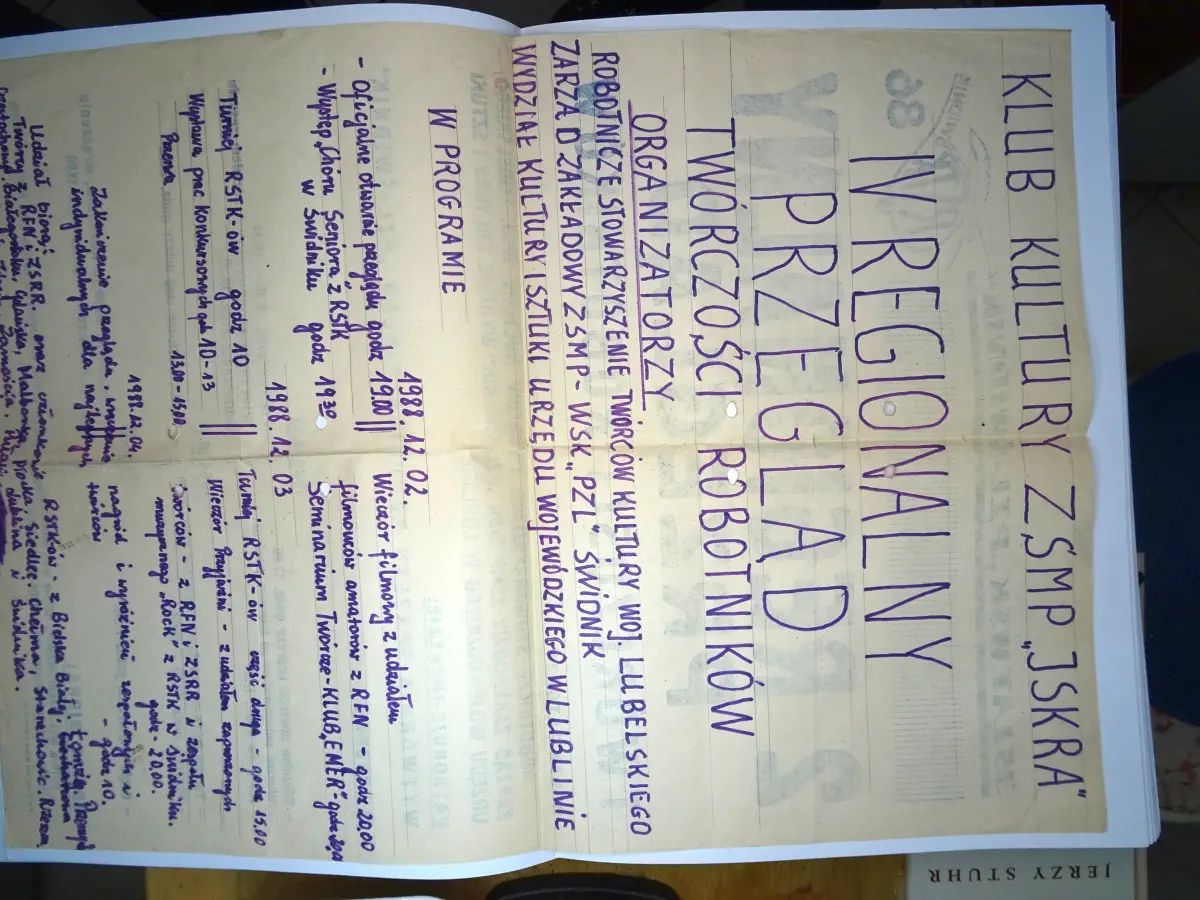 KLUB KULTURY ZSMP „ISKRA"
IV REGIONALNY
PRZEGLĄD
TWÓRCZOŚCI ROBOTNIKÓW
ORGANIZATORZY
ROBOTNICZE STOWARZYSZENIE TWÓRCÓW KULTURY WOJ. LUBELSKIEGO
ZARZĄD ZAKŁADOWY ZSMP - WSK „PZL" ŚWIDNIK
WYDZIAŁ KULTURY I SZTUKI URZĘDU WOJEWÓDZKIEGO W LUBLINIE
W PROGRAMIE
1988. 12. 02.
- Oficjalne otwarcie przeglądu godz 19.00
- Występ „Chóru Seniora" z RSTK
w Świdniku godz 19 30
Wieczór filmowy z udziałem
filmowców amatorów z RFN - godz 20.00
Seminarium Twórcze - KLUB „EMER" godz
1988. 12. 03
Turniej RSTK-ów godz 10
Wystawa prac konkursowych godz 10-13
Prasera 13.00 - 15.00.
Turniej RSTK-ów część druga - godz. 15.00
Wieczór Przyjaźni - z udziałem zaproszonych
twórców - z RFN i ZSRR i zespołu
muzycznego „Rock" z RSTK w Świdniku.
godz - 20.00.
1988.12.04.
Zakończenie przeglądu, wręczenie
indywidualnych dla najlepszych
nagród i wyróżnień zespołowych i
twórców - godz 10.
Udział biorą: RSTK-ów - z Bielska Białej,
Twórcy z RFN i ZSRR oraz członkowie Łomży,
Białegostoku, Gdańska, Malborka, Płocka, Siedlec, Chełma, Skarachowic. Rzeszowa,
Zamościa, Lublina i Świdnika.
JERZY STUHR